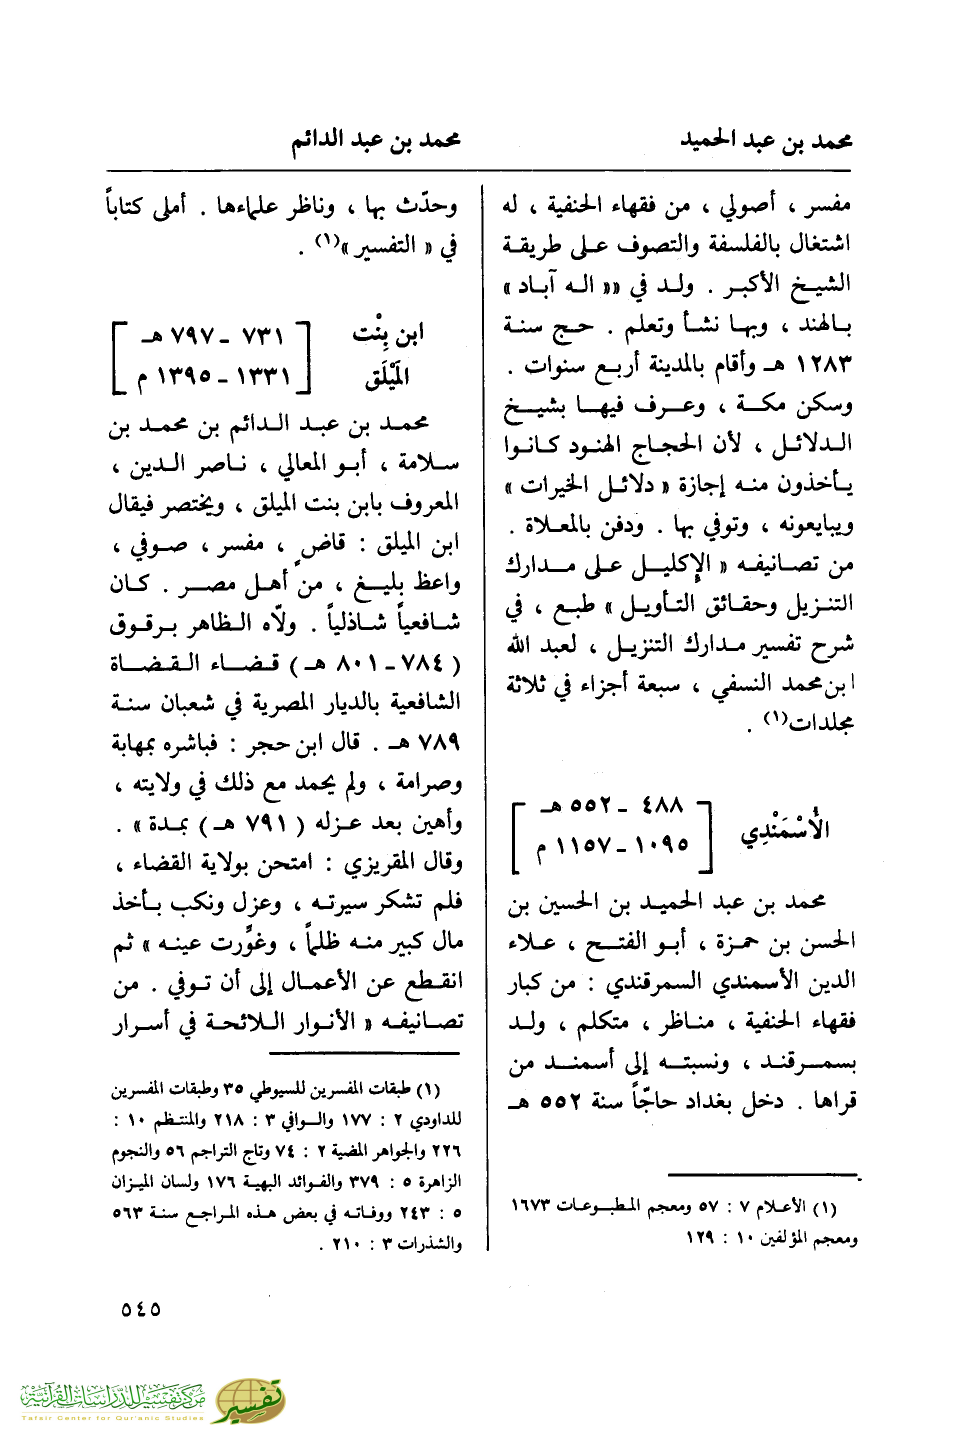 محمد بن عبد الحميد
محمد بن عبد الدائم
مفسر ، أصولي ، من فقهاء الحنفية ، له
اشتغال بالفلسفة والتصوف على طريقة
الشيخ الأكبر . ولد في «« اله آباد »
بالهند ، وبها نشأ وتعلم . حج سنة
١٢٨٣ هـ وأقام بالمدينة أربع سنوات .
وسكن مكة ، وعرف فيها بشيخ
الدلائل ، لأن الحجاج الهنود كانوا
يأخذون منه إجازة « دلائل الخيرات »
ويبايعونه ، وتوفي بها . ودفن بالمعلاة .
من تصانيفه « الإكليل على مدارك
التنزيل وحقائق التأويل » طبع ، في
شرح تفسير مدارك التنزيل ، لعبد الله
ابن محمد النسفي ، سبعة أجزاء في ثلاثة
مجلدات(١) .
الأُسْمَنْدِي
[ ٤٨٨ - ٥٥٢ هـ
١٠٩٥ - ١١٥٧ م ]
محمد بن عبد الحميد بن الحسين بن
الحسن بن حمزة ، أبو الفتح ، علاء
الدين الأسمندي السمرقندي : من كبار
فقهاء الحنفية ، مناظر ، متكلم ، ولد
بسمرقند ، ونسبته إلى أسمند من
قراها . دخل بغداد حاجّاً سنة ٥٥٢ هـ
(١) الأعلام ٧ : ٥٧ ومعجم المطبوعات ١٦٧٣
ومعجم المؤلفين ١٠ : ١٢٩
وحدّث بها ، وناظر علماءها . أملى كتاباً
في « التفسير »(١) .
ابن بِنْت
المَيْلَق
[ ٧٣١ - ٧٩٧ هـ
١٣٣١ - ١٣٩٥ م ]
محمد بن عبد الدائم بن محمد بن
سلامة ، أبو المعالي ، ناصر الدين ،
المعروف بابن بنت الميلق ، ويختصر فيقال
ابن الميلق : قاضٍ ، مفسر ، صوفي ،
واعظ بليغ ، من أهل مصر . كان
شافعياً شاذلياً . ولاّه الظاهر برقوق
( ٧٨٤ - ٨٠١ هـ ) قضاء القضاة
الشافعية بالديار المصرية في شعبان سنة
٧٨٩ هـ . قال ابن حجر : فباشره بمهابة
وصرامة ، ولم يحمد مع ذلك في ولايته ،
وأهين بعد عزله ( ٧٩١ هـ ) بمدة » .
وقال المقريزي : امتحن بولاية القضاء ،
فلم تشكر سيرته ، وعزل ونكب بأخذ
مال كبير منه ظلماً ، وغوِّرت عينه » ثم
انقطع عن الأعمال إلى أن توفي . من
تصانيفه « الأنوار اللائحة في أسرار
(١) طبقات المفسرين للسيوطي ٣٥ وطبقات المفسرين
للداودي ٢ : ١٧٧ والوافي ٣ : ٢١٨ والمنتظم ١٠ :
٢٢٦ والجواهر المضية ٢ : ٧٤ وتاج التراجم ٥٦ والنجوم
الزاهرة ٥ : ٣٧٩ والفوائد البهية ١٧٦ ولسان الميزان
٥ : ٢٤٣ ووفاته في بعض هذه المراجع سنة ٥٦٣
والشذرات ٣ : ٢١٠ .
٥٤٥
مركز تفسير للدراسات القرآنية
Tafsir Center for Qur'anic Studies
تفسير